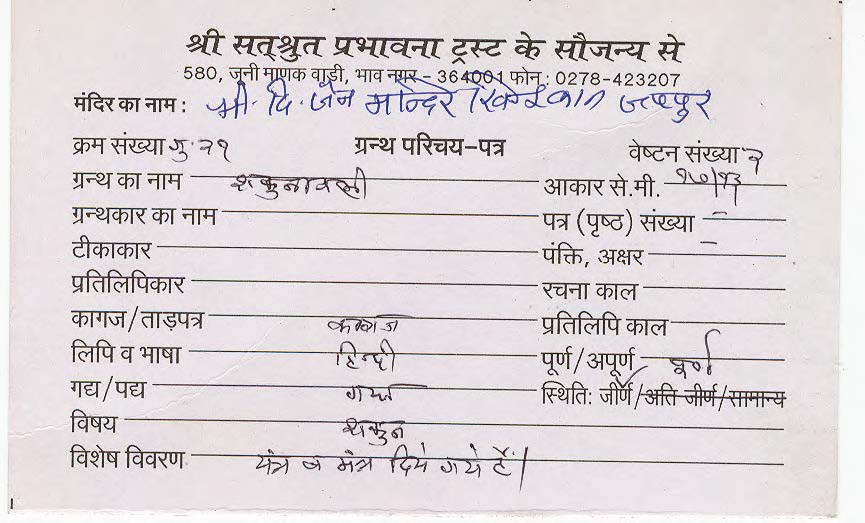 श्री सत्श्रुत प्रभावना ट्रस्ट के सौजन्य से
580, जुनी माणक वाडी, भाव नगर - 364001 फोन : 0278-423207
मंदिर का नाम : श्री. दि. जैन मन्दिर जयपुर
क्रम संख्या गु. २१ ग्रन्थ परिचय-पत्र वेष्टन संख्या २
ग्रन्थ का नाम शकुनावली आकार से.मी. १७/१३
ग्रन्थकार का नाम पत्र (पृष्ठ) संख्या –
टीकाकार पंक्ति, अक्षर –
प्रतिलिपिकार रचना काल
कागज/ताड़पत्र कागज प्रतिलिपि काल
लिपि व भाषा हिन्दी पूर्ण/अपूर्ण पूर्ण
गद्य/पद्य गद्य स्थिति: जीर्ण/अति जीर्ण/सामान्य
विषय शकुन
विशेष विवरण यंत्र व मंत्र दिये गये हैं।